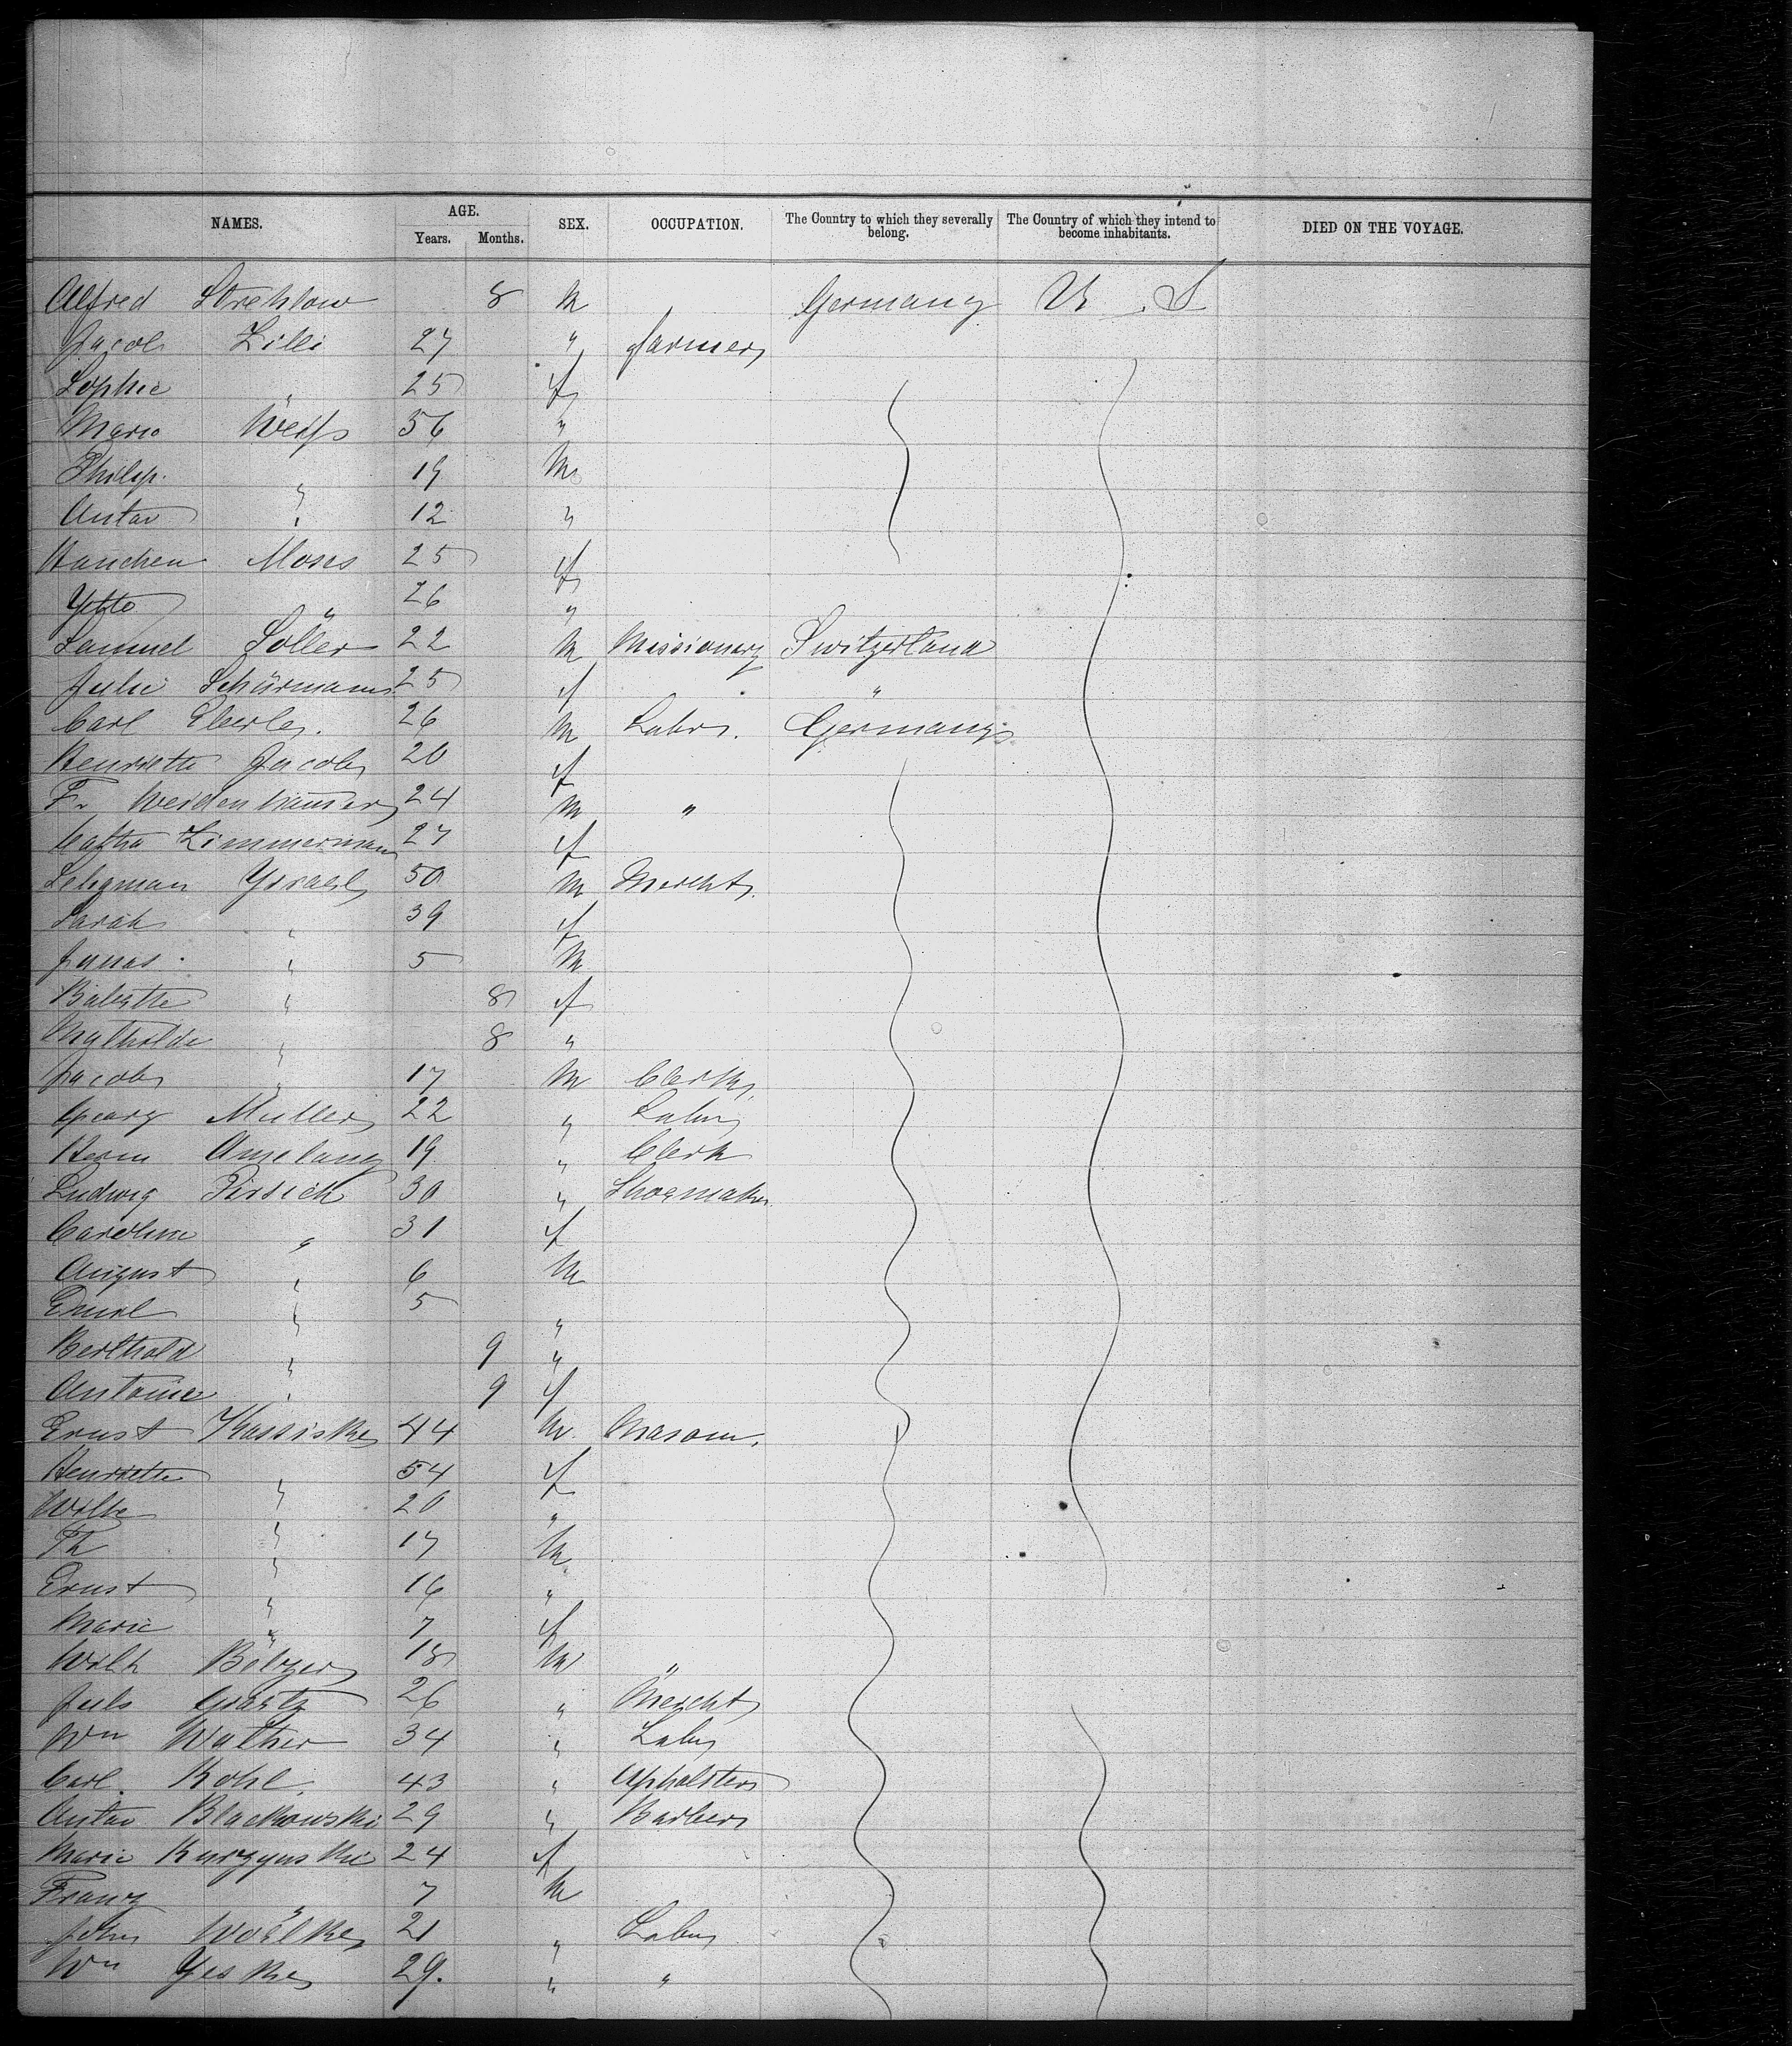 NAMES. AGE. SEX. OCCUPATION. The Country to which they severally belong. The Country of which they intend to become inhabitants. DIED ON THE VOYAGE.
Years. Months.
Alfred Strehlow 8 M Germany U S
Jacob Zilli 27 " farmer
Sophie " 25 f
Marie Weiss 56 "
Philip. " 19 M
Anton " 12 "
Hanchen Moses 25 f
Yette " 26 "
Samuel Söller 22 M Missionary Switzerland
Julie Schürmann 25 f "
Carl Eberle. 26 M Labr. Germany
Henriette Jacob 20 f
Fr Weidenhauser 24 M "
Catha Zimmerman 27 f
Seligman Ysrael 50 M Mercht.
Sarah " 39 f
Jonas " 5 M
Babette " 8 f
Mathilde " 8 "
Jacob " 17 M Clerk
Georg Muller 22 " Labr
Herm Amelang 19 " Clerk
Ludwig Pirsich 30 " Shoemaker.
Caroline " 31 f
August " 6 M
Emil " 5 "
Berthold " 9 "
Antonie " 9 f
Ernst Kassiske 44 M Mason.
Henriette " 54 f
Wilhe " 20 "
Th " 17 M
Ernst " 16 "
Marie " 7 f
Wilh 18 M "
Juls 26 " Mercht
Wm Walther 34 " Labr
Carl Kohl 43 " Upholster
Anton Blackowski 29 " Barber
Marie 24 f
Franz " 7 M
John Woelke 21 " Labr
Wm Yeske 29. " "